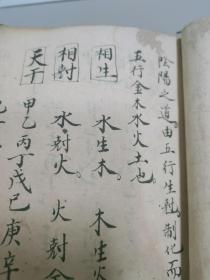 陰陽之道。由五行生尅制化而
五行金木水火土也。
相生 水生木 木生火
相尅 水尅火 火尅金
天干 甲乙丙丁戊己庚辛